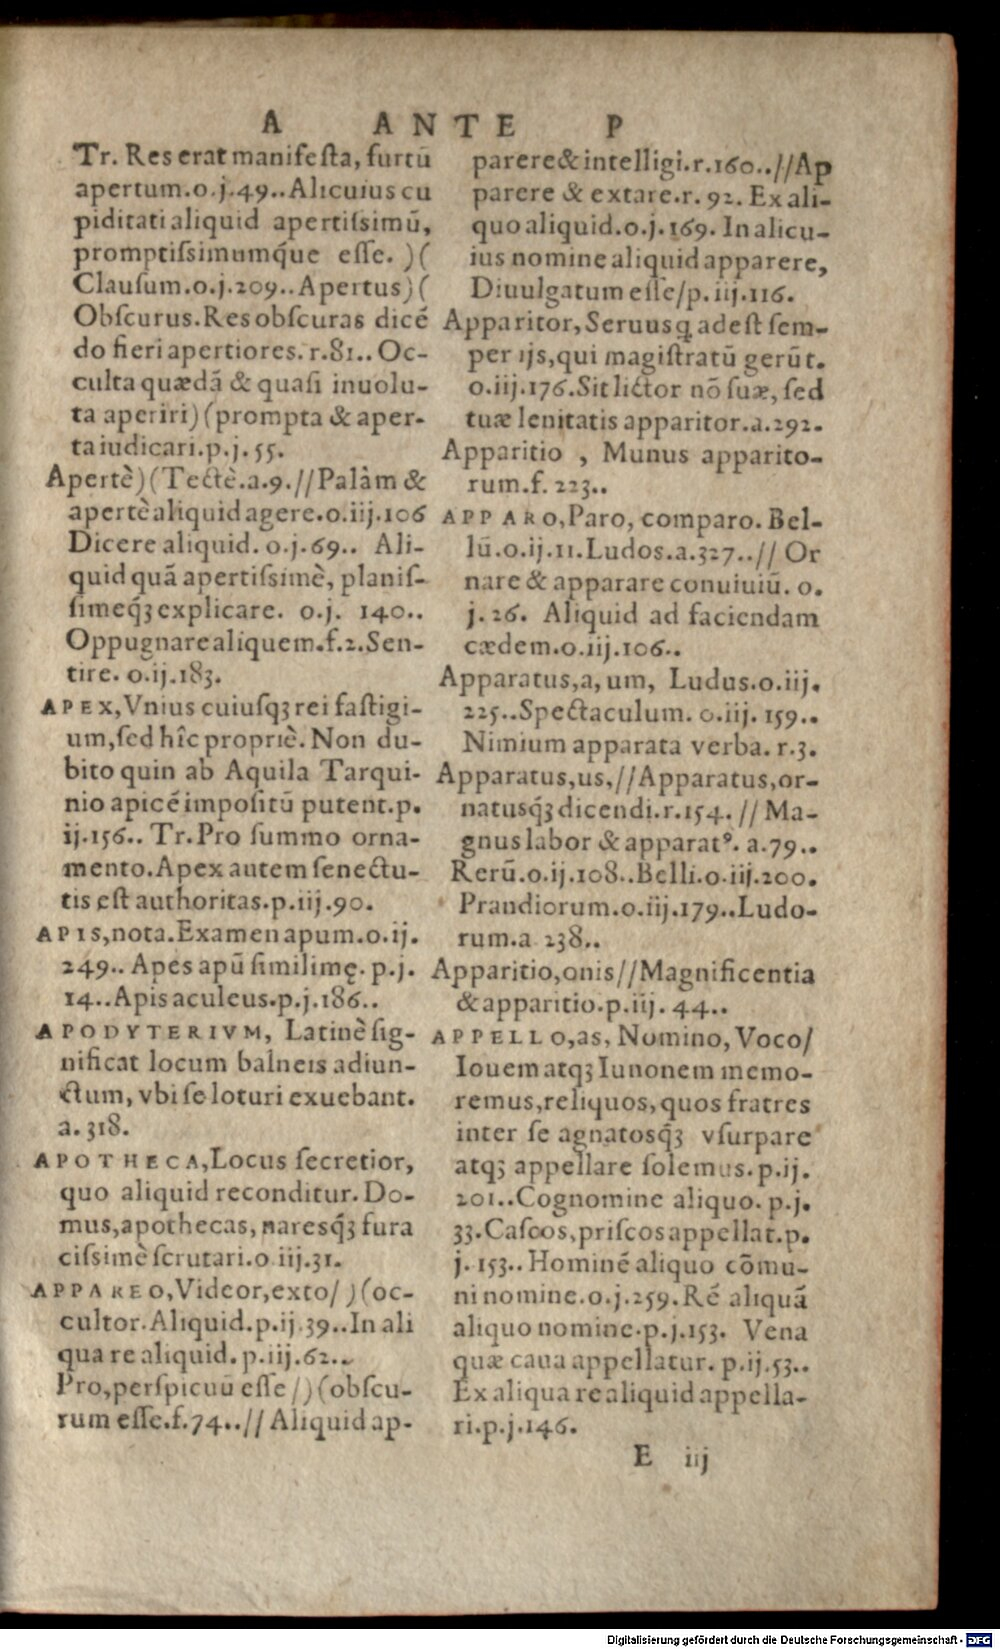 A ANTE P
Tr. Res erat manifeſta, furtū
apertum.o.j.49..Alicuius cu
piditati aliquid apertiſsimū,
promptiſsimumq́ue eſſe. )(
Clauſum.o.j.209..Apertus)(
Obſcurus.Res obſcuras dicē
do fieri apertiores.r.81..Oc-
culta quædā & quaſi inuolu-
ta aperiri)(prompta & aper-
ta iudicari.p.j.55.
Apertè)(Tectè.a.9.//Palàm &
apertè aliquid agere.o.iij.106
Dicere aliquid. o.j.69.. Ali-
quid quā apertiſsimè, planiſ-
ſimeq́ꝫ explicare. o.j. 140..
Oppugnare aliquem.f.2.Sen-
tire. o.ij.183.
APEX,Vnius cuiuſqꝫ rei faſtigi-
um,ſed hîc propriè. Non du-
bito quin ab Aquila Tarqui-
nio apicē impoſitū putent.p.
ij.156.. Tr.Pro ſummo orna-
mento.Apex autem ſenectu-
tis eſt authoritas.p.iij.90.
APIS,nota.Examen apum.o.ij.
249.. Apes apū ſimilimę. p.j.
14..Apis aculeus.p.j.186..
APODYTERIVM, Latinè ſig-
nificat locum balneis adiun-
ctum, vbi ſe loturi exuebant.
a.318.
APOTHECA,Locus ſecretior,
quo aliquid reconditur. Do-
mus,apothecas, naresq́ꝫ fura
ciſsimè ſcrutari.o iij.31.
APPAREO,Videor,exto/ )(oc-
cultor.Aliquid.p.ij 39..In ali
qua re aliquid. p.iij.62..
Pro,perſpicuū eſſe/)(obſcu-
rum eſſe.f.74..// Aliquid ap-
parere & intelligi.r.160..//Ap
parere & extare.r. 92. Ex ali-
quo aliquid.o.j.169. In alicu-
ius nomine aliquid apparere,
Diuulgatum eſſe/p.iij.116.
Apparitor, Seruus ꝗ adeſt ſem-
per ijs,qui magiſtratū gerūt.
o.iij.176.Sit lictor nō ſuæ, ſed
tuæ lenitatis apparitor.a.292.
Apparitio , Munus apparito-
rum.f. 223..
APPARO,Paro, comparo. Bel-
lū.o.ij.11.Ludos.a.327..// Or
nare & apparare conuiuiū. o.
j.26. Aliquid ad faciendam
cædem.o.iij.106..
Apparatus,a, um, Ludus.o.iij.
225..Spectaculum. o.iij. 159..
Nimium apparata verba. r.3.
Apparatus,us,//Apparatus,or-
natusq́ꝫ dicendi.r.154. // Ma-
gnus labor & apparatꝰ. a.79..
Rerū.o.ij.108..Belli.o.iij.200.
Prandiorum.o.iij.179..Ludo-
rum.a 238..
Apparitio,onis//Magnificentia
& apparitio.p.iij. 44..
APPELLO,as, Nomino, Voco/
Iouem atqꝫ Iunonem memo-
remus,reliquos, quos fratres
inter ſe agnatosq́ꝫ vſurpare
atqꝫ appellare ſolemus.p.ij.
201..Cognomine aliquo. p.j.
33.Caſcos,priſcos appellat.p.
j. 153.. Hominē aliquo cōmu-
ni nomine.o.j.259.Rē aliquā
aliquo nomine.p.j.153. Vena
quæ caua appellatur. p.ij.53..
Ex aliqua re aliquid appella-
ri.p.j.146.
E iij
Digitalisierung gefördert durch die Deutsche Forschungsgemeinschaft - DFG